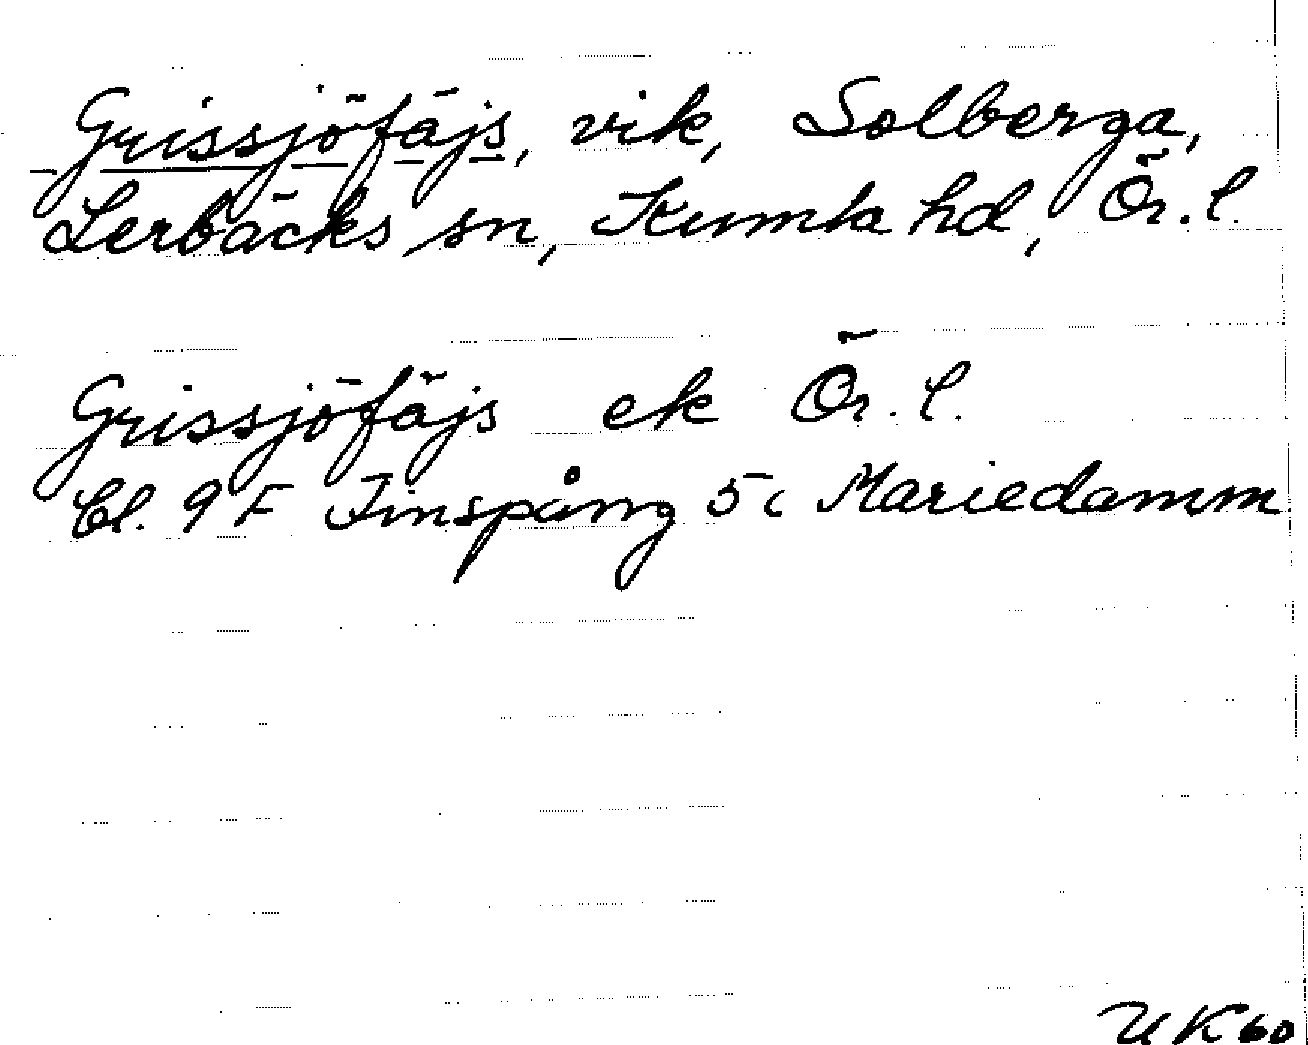 Grissjöfäjs, vik, Solberga,
Lerbäcks sn, Kumla hd, Ör. l.
Grissjöfäjs ek Ör. l.
Bl. 9 F Finspång 5 c Mariedamm
UK 60